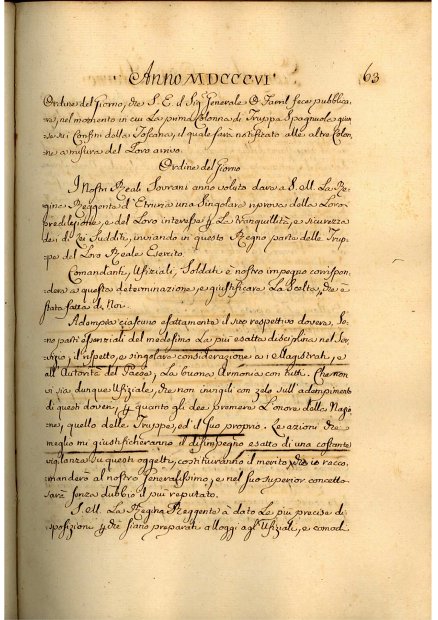 Anno MDCCCVI
63
Ordine del Giorno, che S. E. il Sig.r Generale O Farril fece pubblica-
re, nel momento in cui La prima Colonna di Truppa Spagnuola giun-
se ai Confini della Toscana, il quale sarà notificato alle altre Colon-
ne a misura del Loro arrivo.
Ordine del Giorno
I Nostri Reali Sovrani anno voluto dare a S. M. La Re-
gina Reggente d'Etruria una Singolare riprova della Loro
predilezione, e del Loro interesse p. La tranquillità, e sicurezza
dei di Lei Sudditi, inviando in questo Regno parte delle Trup-
pe del Loro Reale Esercito.
Comandanti, Ufiziali, Soldati è nostro impegno corrispon-
dere a questa determinazione, e giustificare La Scelta, che è
stata fatta di Noi.
Adempia ciascuno esattamente il suo respettivo dovere. So-
no parti essenziali del medesimo La più esatta disciplina nel Ser-
vizio, il rispetto, e singolare considerazione ai Magistrati, e
all'Autorità del Paese, La buona Armonia con tutti. Che non
vi sia dunque Ufiziale, che non invigili con zelo sull'adempimento
di questi doveri, p. quanto gli dee premere L'onore della Nazio-
ne, quello delle Truppe, ed il Suo proprio. Le azioni che
meglio mi giustificheranno il disimpegno esatto di una costante
vigilanza su questi oggetti, costituiranno il merito che io racco-
manderò al nostro Generalissimo, e nel suo superior concetto
sarà senza dubbio il più reputato.
S. M. La Regina Reggente à dato Le più precise di-
sposizioni p. che siano preparati alloggi agl'Ufiziali, e comodi